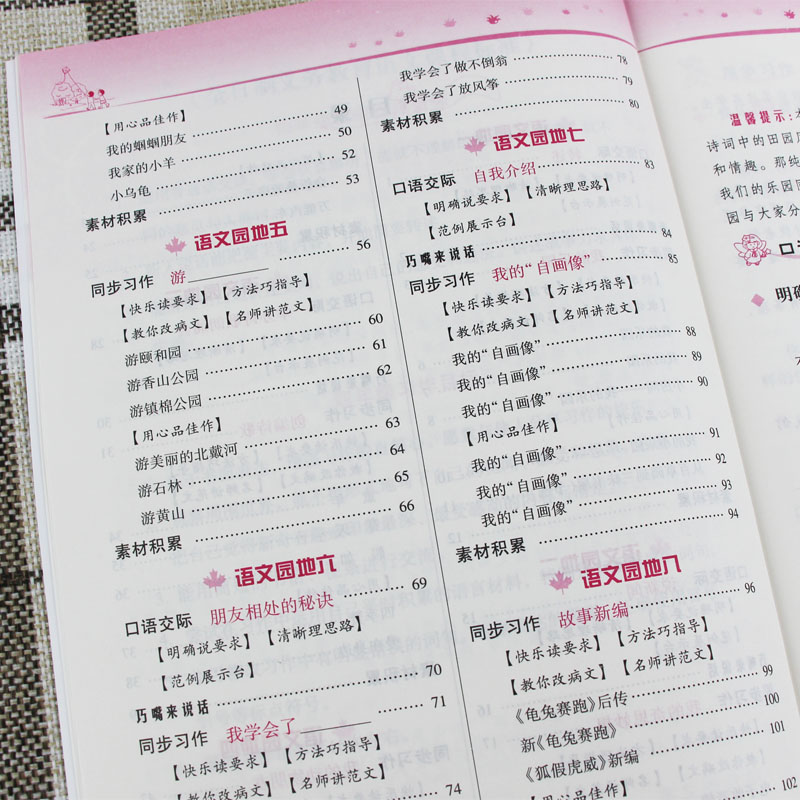 【用心品佳作】
我的蝈蝈朋友 49
我家的小羊 50
小乌龟 52
素材积累 53
语文园地五
同步习作 游 56
【快乐读要求】【方法巧指导】
【教你改病文】【名师讲范文】
游颐和园 60
游香山公园 61
游镇棉公园 62
【用心品佳作】
游美丽的北戴河 63
游石林 64
游黄山 65
素材积累 66
语文园地六
口语交际 朋友相处的秘诀 69
【明确说要求】【清晰理思路】
【范例展示台】
巧嘴来说话 70
同步习作 我学会了 71
【快乐读要求】【方法巧指导】
【教你改病文】【名师讲范文】
74
我学会了做不倒翁 78
我学会了放风筝 79
素材积累 80
语文园地七
口语交际 自我介绍 83
【明确说要求】【清晰理思路】
【范例展示台】
巧嘴来说话 84
同步习作 我的“自画像” 85
【快乐读要求】【方法巧指导】
【教你改病文】【名师讲范文】
我的“自画像” 88
我的“自画像” 89
我的“自画像” 90
【用心品佳作】
我的“自画像” 91
我的“自画像” 92
我的“自画像” 93
素材积累 94
语文园地八
同步习作 故事新编 96
【快乐读要求】【方法巧指导】
【教你改病文】【名师讲范文】
《龟兔赛跑》后传 99
新《龟兔赛跑》 100
《狐假虎威》新编 101
【用心品佳作】
102
温馨提示：
诗词中的田园
和情趣。那纯
我们的乐园
园与大家分
口
明确